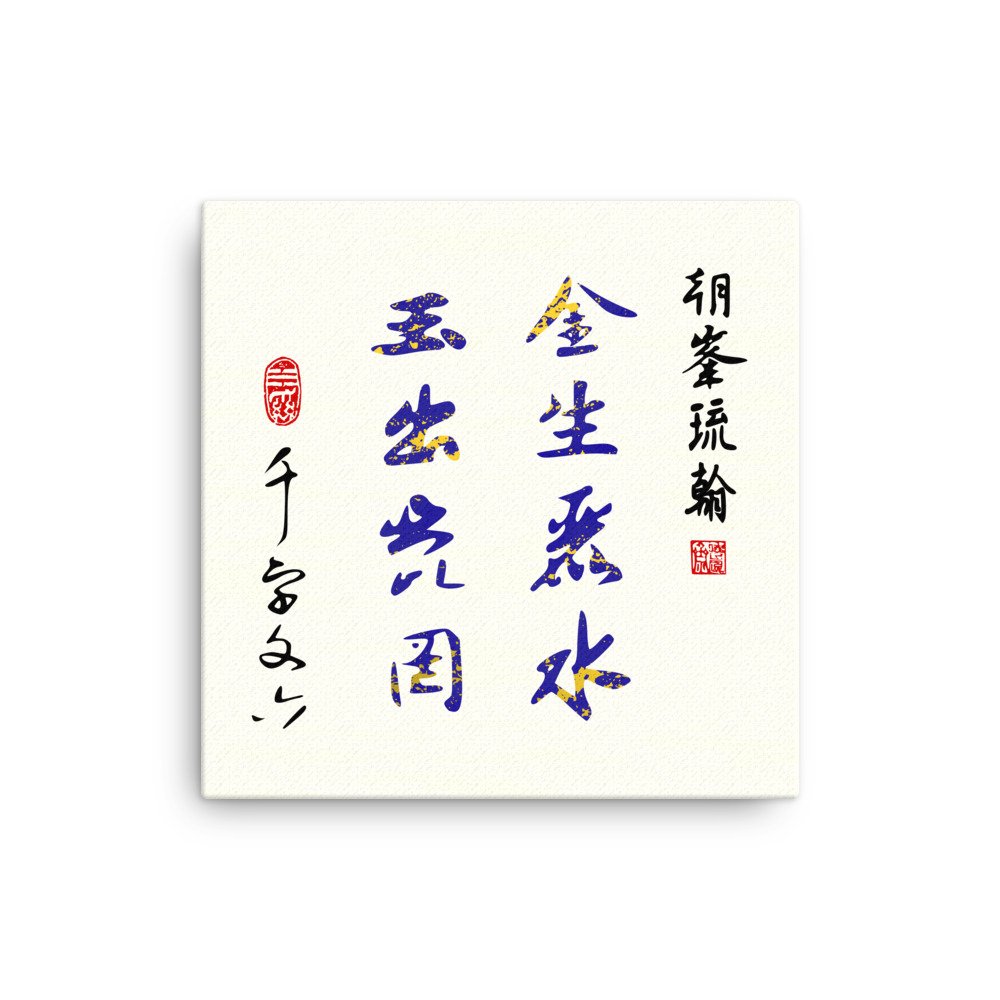 朝峯琉翰
金生麗水
玉出崑岡
千字文六